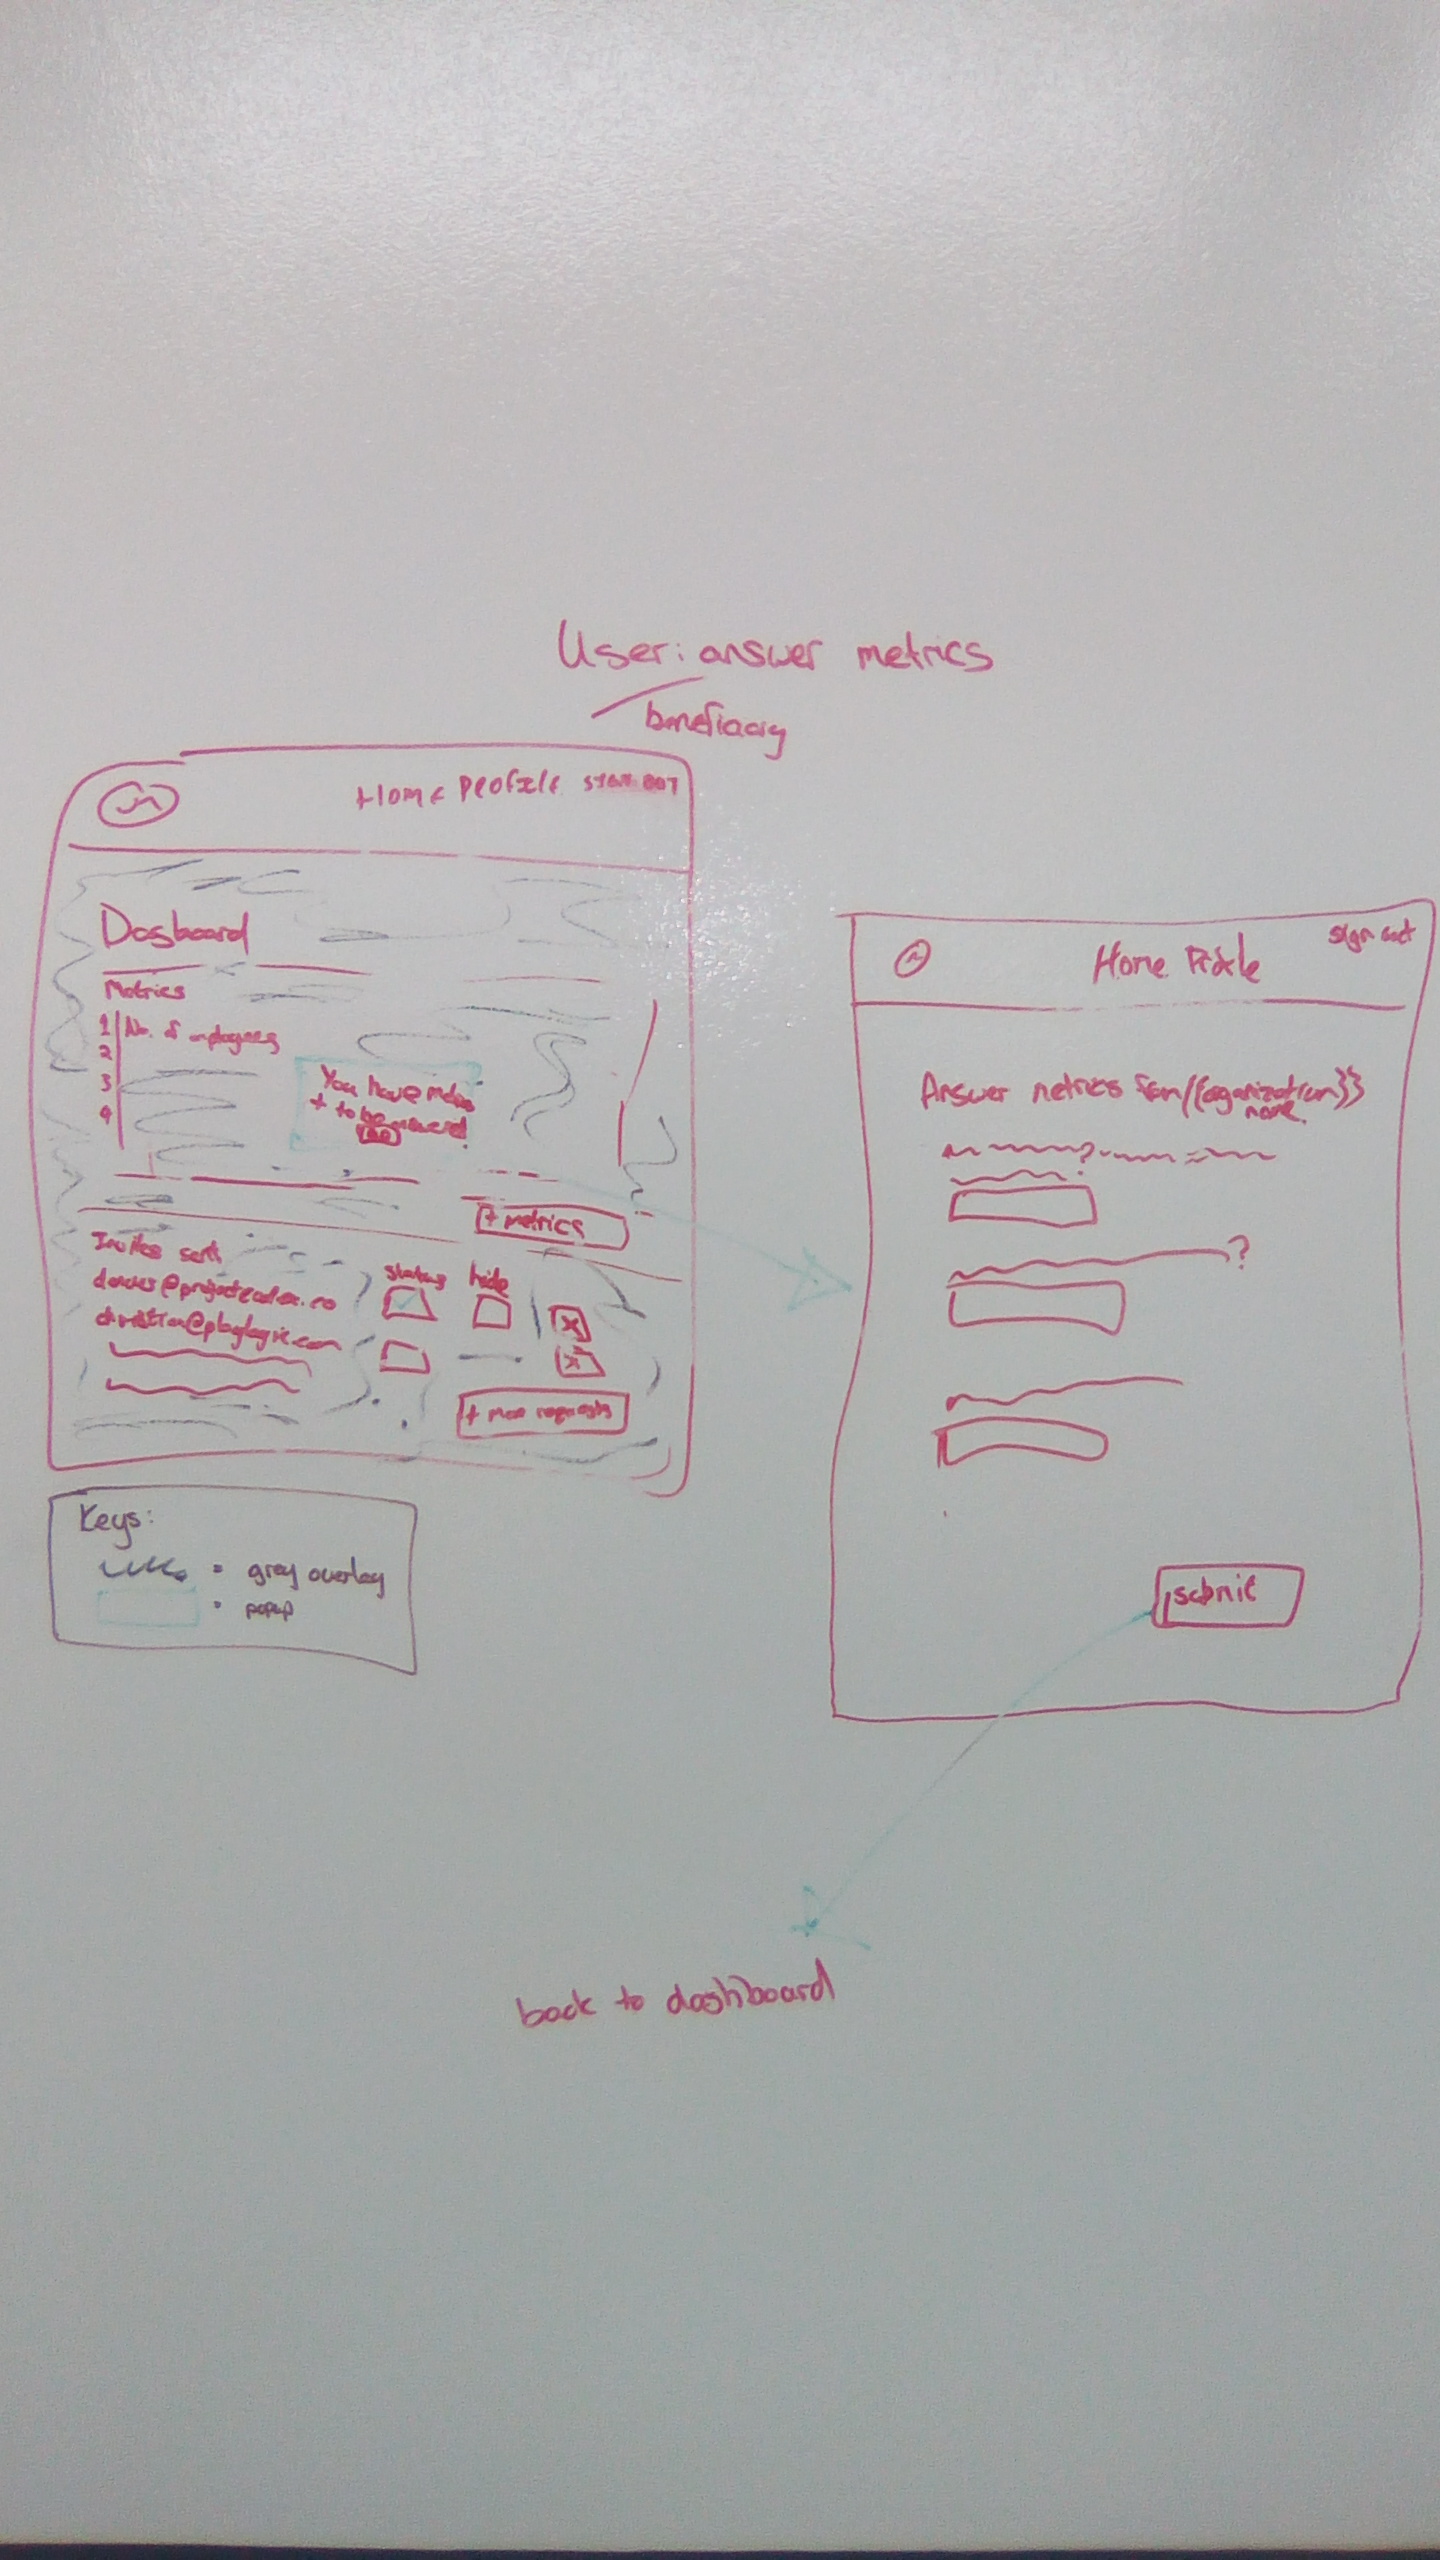 User: answer metrics
beneficiary
Home Profile sign out
Dasboard
Metrics
1 No. of employees
2
3
4
You have metrics
to be answered
+ metrics
Invites sent
status hide
x
x
+ more requests
Keys:
= grey overlay
= popup
Home Profile sign out
Answer metrics from {{organization
name}}
?
?
submit
back to dashboard